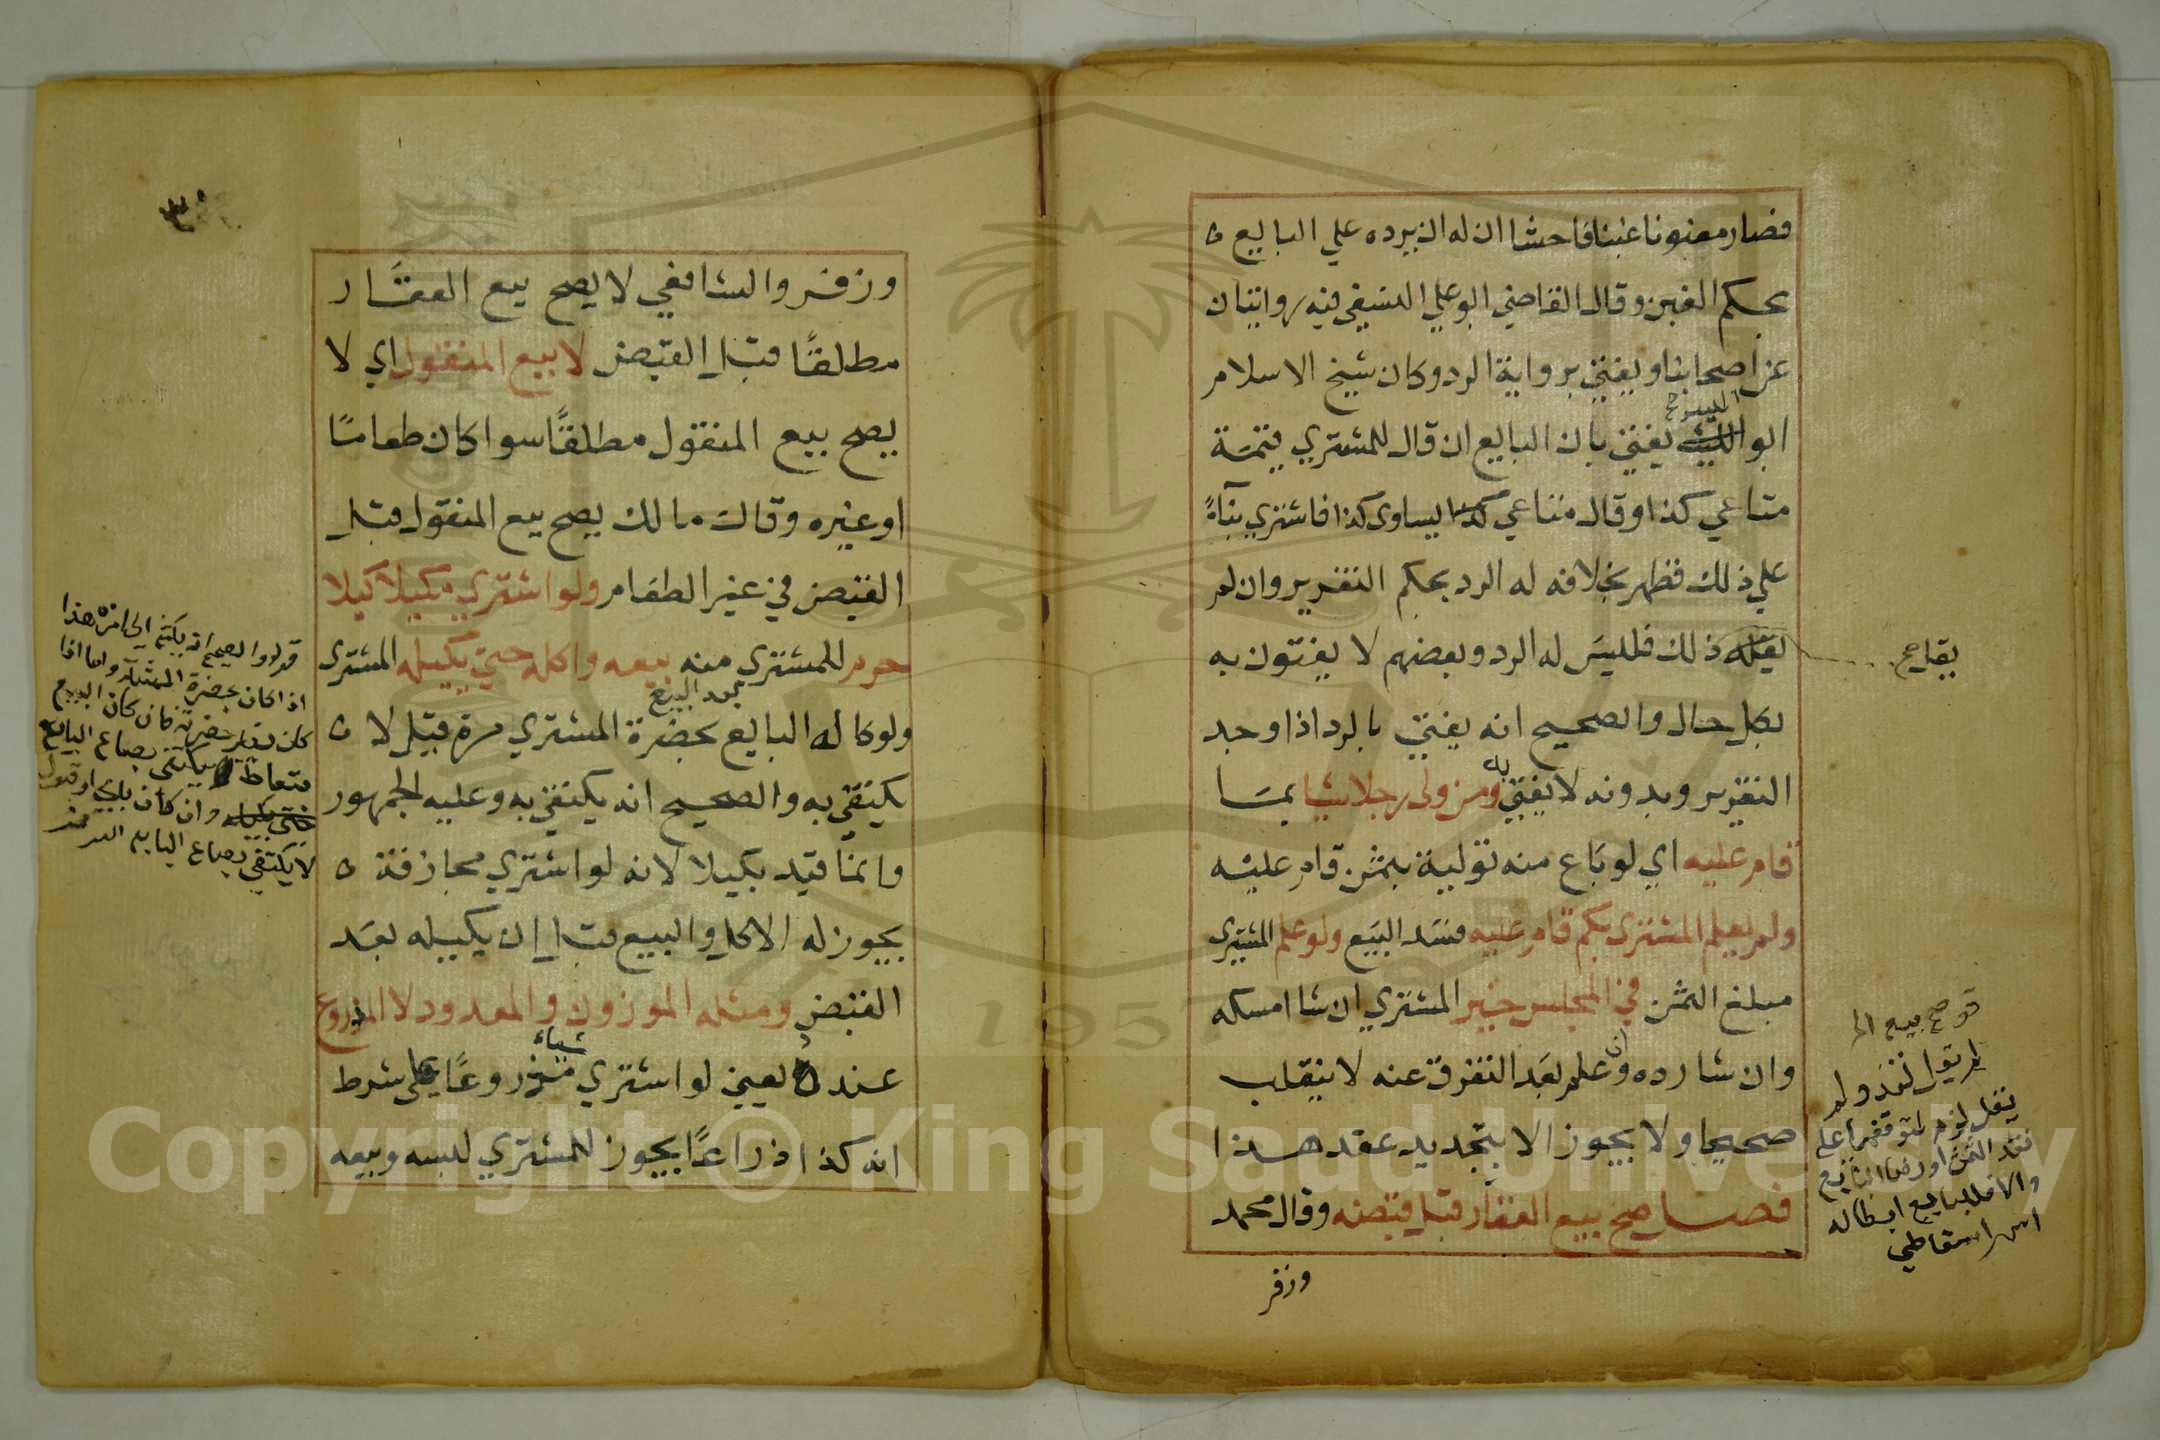 فصار مغبونا غبنا فاحشا ان له ان يرده علي البايع ه
بحكم الغبن وقال القاضي ابو علي النسفي فيه روايتان
عن اصحابنا ويفتي برواية الرد وكان شيخ الاسلام
ابو اليسر يفتي بان البايع ان قال للمشتري قيمة
متاعي كذا او قال متاعي كذا يساوي كذا فاشتري بنآءً
علي ذلك فظهر بخلافه له الرد بحكم التغرير وان لم
يقله ذلك فليس له الرد وبعضهم لا يفتون به
بكل حال والصحيح انه يفتي بالرد اذا وجد
التغرير وبدونه لا يفتي به ومن ولي رجلا شيا بما
قام عليه اي لو باع منه تولية بثمن قام عليه
ولم يعلم المشتري بكم قام عليه فسد البيع ولو علم المشتري
مبلغ الثمن في المجلس خير المشتري ان شا امسكه
وان شا رده وان علم بعد التفرق عنه لا ينقلب
صحيحا ولا يجوز الا بتجديد عقد هذا
فصل صح بيع العقار قبل قبضه وقال محمد
وزفر
يقل صح
قو صح بيع الخ
لم يقل نفذ ولم
يقل لزم لتوقفهما علي
نقد الثمن او رضا البايع
والا فللبايع ابطاله
اسقاطي
وزفر والشافعي لا يصح بيع العقار
مطلقًا قبل القبض لا بيع المنقول اي لا
يصح بيع المنقول مطلقًا سوا كان طعامًا
او غيره وقال مالك يصح بيع المنقول قبل
القبض في غير الطعام ولو اشتري مكيلا كيلا
حرم للمشتري منه بيعه واكله حتي يكيله المشتري
ولو كاله البايع بعد البيع بحضرة المشتري مرة قيل لا ه
يكتفي به والصحيح انه يكتفي به وعليه الجمهور
وانما قيد بكيلا لانه لو اشتري مجازفة ه
يجوز له الاكل والبيع قبل ان يكيله بعد
القبض ومثله الموزون والمعدود لا المذروع
عنده يعني لو اشتري شياء مذروعًا علي شرط
انه كذا ذراعًا يجوز للمشتري لبسه وبيعه
قوله والصحيح انه يكتفي الي اخره هذا
اذا كان بحضرة المشتري واما اذا
كان بغير حضرته فان كان البيع
يكتفي بصاع البايع
وان كان
لا يكتفي بصاع البايع